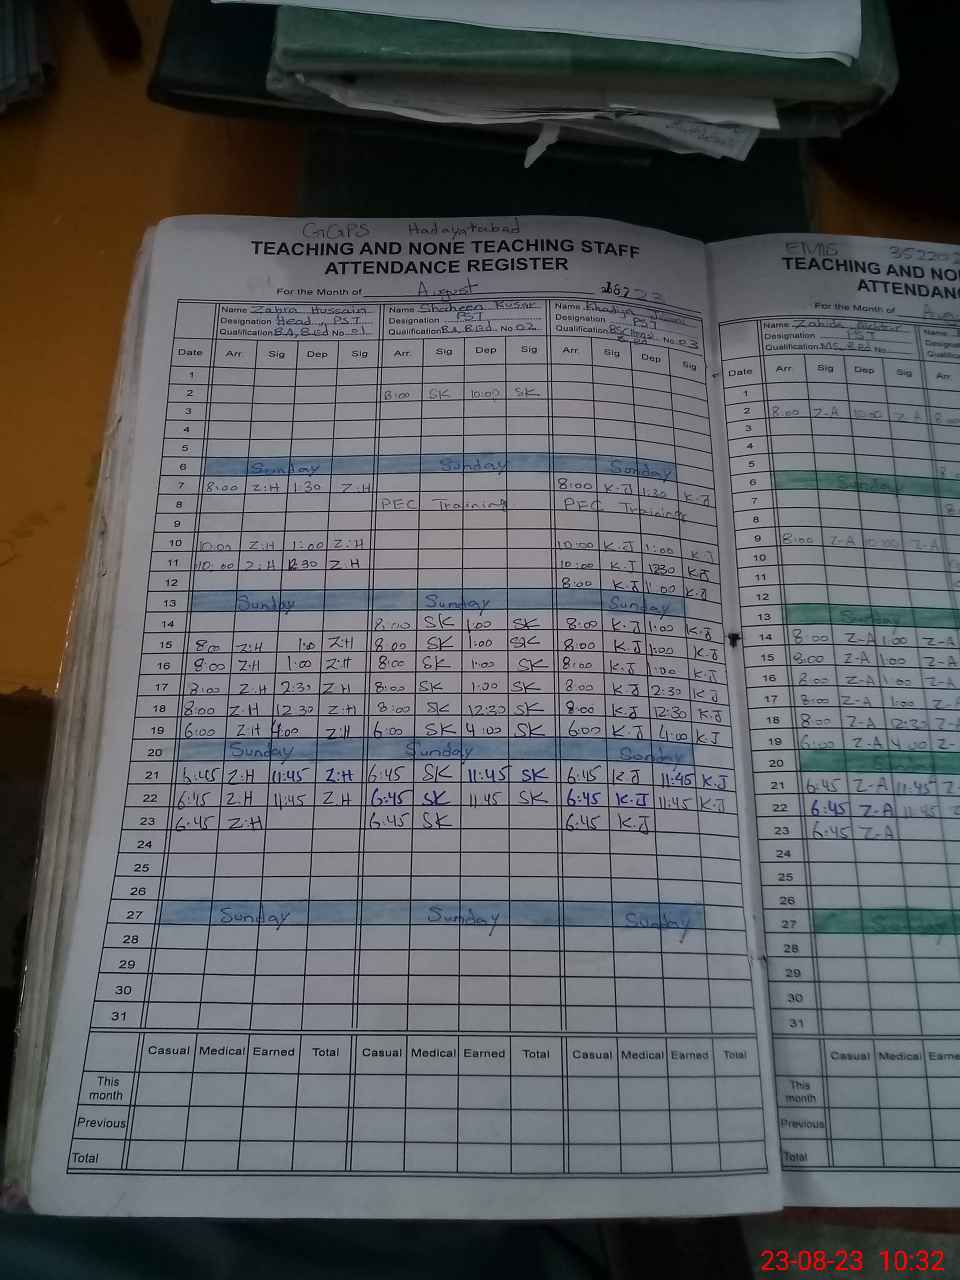 GGPS Hadayatabad
TEACHING AND NONE TEACHING STAFF
ATTENDANCE REGISTER
For the Month of August
Name Zahra Hussain Name Shaheen Kusar Name Khadija
Designation Head, PST Designation PST Designation PST
Qualification B.A, B.Ed No. 01 Qualification B.A, B.Ed No. 02 Qualification No. 03
Date Arr. Sig Dep Sig Arr. Sig Dep Sig Arr. Sig Dep Sig
1
2 8:00 SK 10:00 SK
3
4
5
6 Sunday Sunday Sunday
7 8:00 Z:H 1:30 Z:H 8:00 K.J 1:30 K.J
8 PEC Training PEC Training
9
10 10:00 Z:H 1:00 Z:H 10:00 K.J 1:00 K.J
11 10:00 Z:H 12:30 Z:H 10:00 K.J 1230 K.J
12 8:00 K.J 1:00 K.J
13 Sunday Sunday Sunday
14 8:00 SK 1:00 SK 8:00 K.J 1:00 K.J
15 8:00 Z:H 1:00 Z:H 8:00 SK 1:00 SK 8:00 K.J 1:00 K.J
16 8:00 Z:H 1:00 Z:H 8:00 SK 1:00 SK 8:00 K.J 1:00 K.J
17 8:00 Z:H 2:30 Z:H 8:00 SK 1:00 SK 8:00 K.J 2:30 K.J
18 8:00 Z:H 12:30 Z:H 8:00 SK 12:30 SK 8:00 K.J 12:30 K.J
19 6:00 Z:H 4:00 Z:H 6:00 SK 4:00 SK 6:00 K.J 4:00 K.J
20 Sunday Sunday Sunday
21 6:45 Z:H 11:45 Z:H 6:45 SK 11:45 SK 6:45 K.J 11:45 K.J
22 6:45 Z:H 11:45 Z.H 6:45 SK 11:45 SK 6:45 K.J 11:45 K.J
23 6:45 Z:H 6:45 SK 6:45 K.J
24
25
26
27 Sunday Sunday Sunday
28
29
30
31
Casual Medical Earned Total Casual Medical Earned Total Casual Medical Earned Total
This month
Previous
Total
EMIS 35220
TEACHING AND NO
ATTENDAN
For the Month of
Name Zahida
Designation PST
Qualification No.
Date Arr. Sig Dep Sig Arr.
1
2 8:00 Z-A 10:00 Z-A
3
4
5
6 Sunday
7
8
9 8:00 Z-A 10:00 Z-A
10
11
12
13 Sunday
14 8:00 Z-A 1:00 Z-A
15 8:00 Z-A 1:00 Z-A
16 8:00 Z-A 1:00 Z-A
17 8:00 Z-A 1:00 Z-
18 8:00 Z-A 12:30 Z-
19 6:00 Z-A 4:00 Z-
20
21 6:45 Z-A 11:45 Z-
22 6:45 Z-A 11:45 Z
23 6:45 Z-A
24
25
26
27 Sunday
28
29
30
31
Casual Medical Earne
This month
Previous
Total
23-08-23 10:32